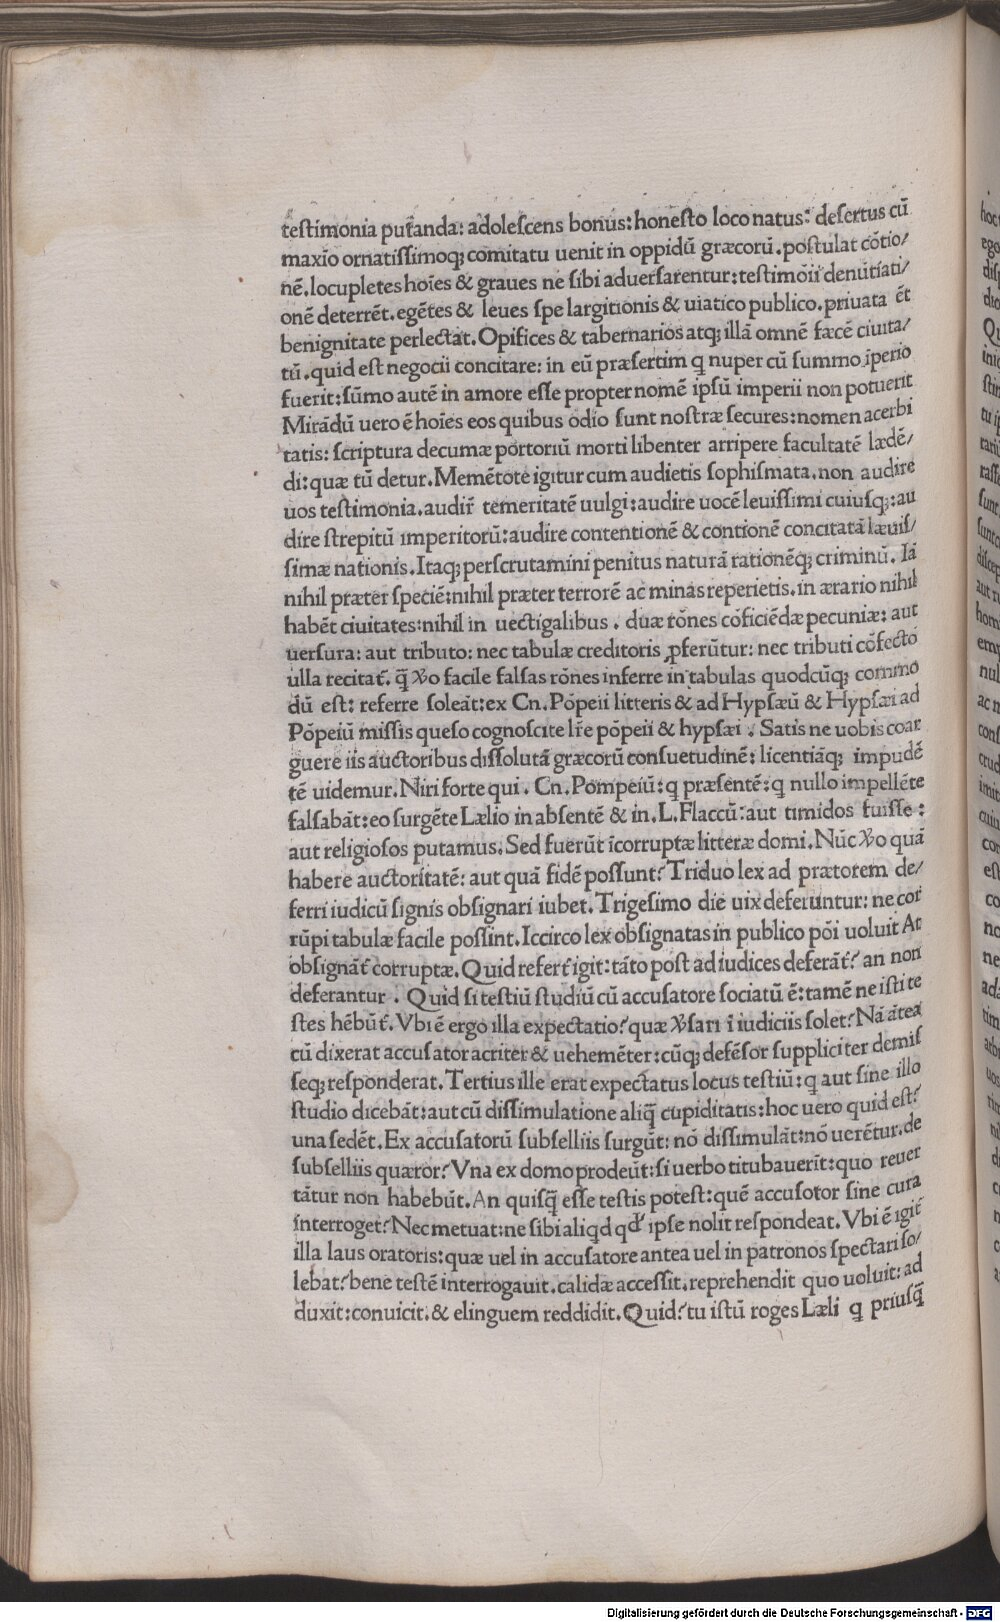 teſtimonia put̃anda: adoleſcens bonus: honeſto loco natus: deſertus cū
maxīo ornatiſſimoq; comitatu uenit in oppidū græcorū. poſtulat cōtio/
nē. locupletes hoīes & graues ne ſibi aduerſarentur: teſtimōii denūtiati/
onē deterrēt. egētes & leues ſpe largitionis & uiatico publico. priuata ēt
benignitate perlectat. Opifices & tabernarios atq; illā omnē fæcē ciuita/
tū. quid eſt negocii concitare: in eū præſertim q nuper cū ſummo īperio
fuerit: ſūmo autē in amore eſſe propter nomē ipſū imperii non potuerit
Mirādū uero ē hoīes eos quibus odio ſunt noſtræ ſecures: nomen acerbi
tatis: ſcriptura decumæ portoriū morti libenter arripere facultatē lædē/
di: quæ tū detur. Memētote igitur cum audietis ſophiſmata. non audire
uos teſtimonia. audir̃ temeritatē uulgi: audire uocē leuiſſimi cuiuſq;: au
dire ſtrepitū imperitorū: audire contentionē & contionē concitatā læuiſ/
ſimæ nationis. Itaq; perſcrutamini penitus naturā rationēq; criminū. Iā
nihil præter ſpeciē: nihil præter terrorē ac minas reperietis. in ærario nihil
habēt ciuitates: nihil in uectigalibus. duæ rōnes cōficiēdæ pecuniæ: aut
uerſura: aut tributo: nec tabulæ creditoris ꝓferūtur: nec tributi cōfectō
ulla recitat̃. q̄ ꝟo facile falſas rōnes inferre in tabulas quodcūq; commo
dū eſt: referre ſoleāt: ex Cn. Pōpeii litteris & ad Hypſæū & Hypſæi ad
Pōpeiū miſſis queſo cognoſcite lr̃e pōpeii & hypſæi. Satis ne uobis coar
guere iis auctoribus diſſolutā græcorū conſuetudinē: licentiāq; impudē
tē uidemur. Niri forte qui. Cn. Pompeiū: q præſentē: q nullo impellēte
falſabāt: eo ſurgēte Lælio in abſentē & in. L. Flaccū: aut timidos fuiſſe:
aut religioſos putamus. Sed fuerūt īcorruptæ litteræ domi. Nūc ꝟo quā
habere auctoritatē: aut quā fidē poſſunt? Triduo lex ad prætorem de/
ferri iudicū ſignis obſignari iubet. Trigeſimo die uix deferuntur: ne cor
rūpi tabulæ facile poſſint. Iccirco lex obſignatas in publico pōi uoluit At
obſignāt̃ corruptæ. Quid refert igit̃: tāto poſt ad iudices deferāt̃? an non
deferantur. Quid ſi teſtiū ſtudiū cū accuſatore ſociatū ē: tamē ne iſti te
ſtes hēbūt̃. Vbi ē ergo illa expectatio? quæ ꝟſari ī iudiciis ſolet? Nā ātea
cū dixerat accuſator acriter & uehemēter: cūq; defēſor ſuppliciter demiſ
ſeq; reſponderat. Tertius ille erat expectatus locus teſtiū: q aut ſine illo
ſtudio dicebāt: aut cū diſſimulatione aliq̄ cupiditatis: hoc uero quid eſt?
una ſedēt. Ex accuſatorū ſubſelliis ſurgūt: nō diſſimulāt: nō uerētur. de
ſubſelliis quæror? Vna ex domo prodeūt: ſi uerbo titubauerīt: quo reuer
tātur non habebūt. An quiſq̄ eſſe teſtis poteſt: quē accuſotor ſine cura
interroget? Nec metuat: ne ſibi aliqd qd̛ ipſe nolit reſpondeat. Vbi ē igit̃
illa laus oratoris: quæ uel in accuſatore antea uel in patronos ſpectari ſo/
lebat? bene teſtē interrogauit. calidæ acceſſit. reprehendit quo uoluit: ad
duxit: conuicit. & elinguem reddidit. Quid? tu iſtū roges Læli q priuſq̄
Digitalisierung gefördert durch die Deutsche Forschungsgemeinschaft - DFG